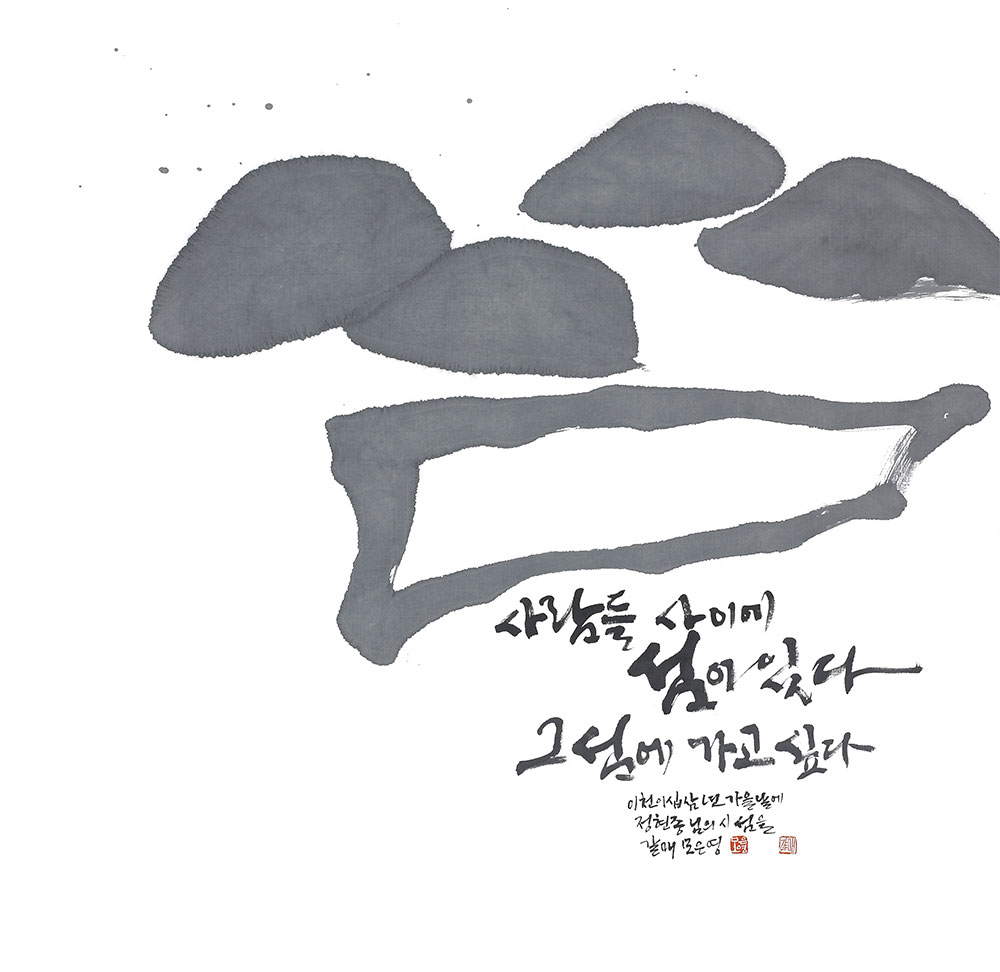 사람들 사이에
섬이 있다
그 섬에 가고 싶다
이천이십삼년 가을날에
정현종 님의 시 섬을
갈매 모은영